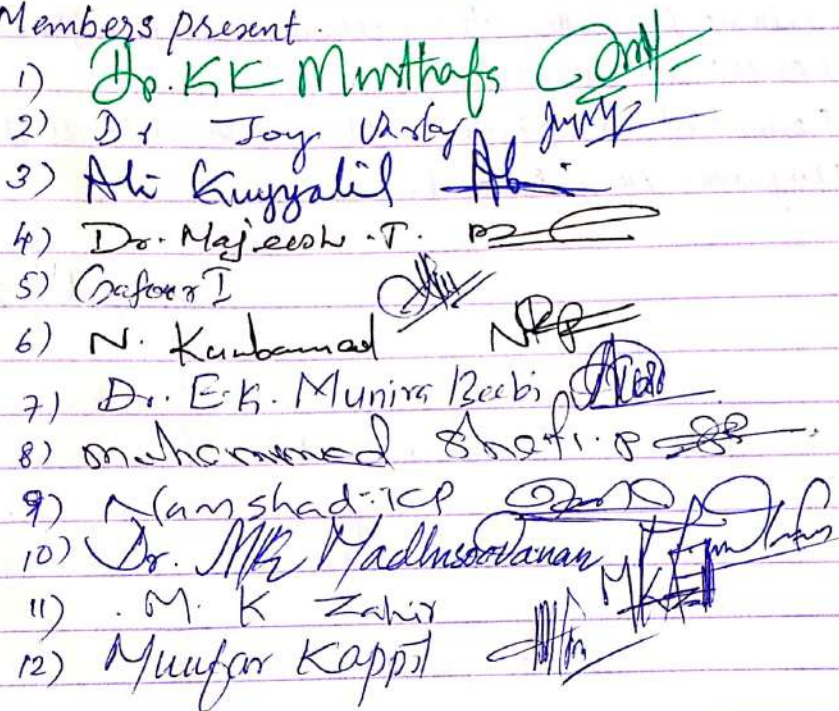 Members present.
1) Dr. KK Musthafa
2) Dr Joy Varkey
3) Ali Kuyyalil
4) Dr. Majeesh .T.
5) Gafoor I
6) N. Kunbamad
7) Dr. E.K. Munira Beebi
8) muhammed Shafi.P
9) Namshad
10) Dr. MR Madhusoodanan
11) M. K Zahir
12) Kappil